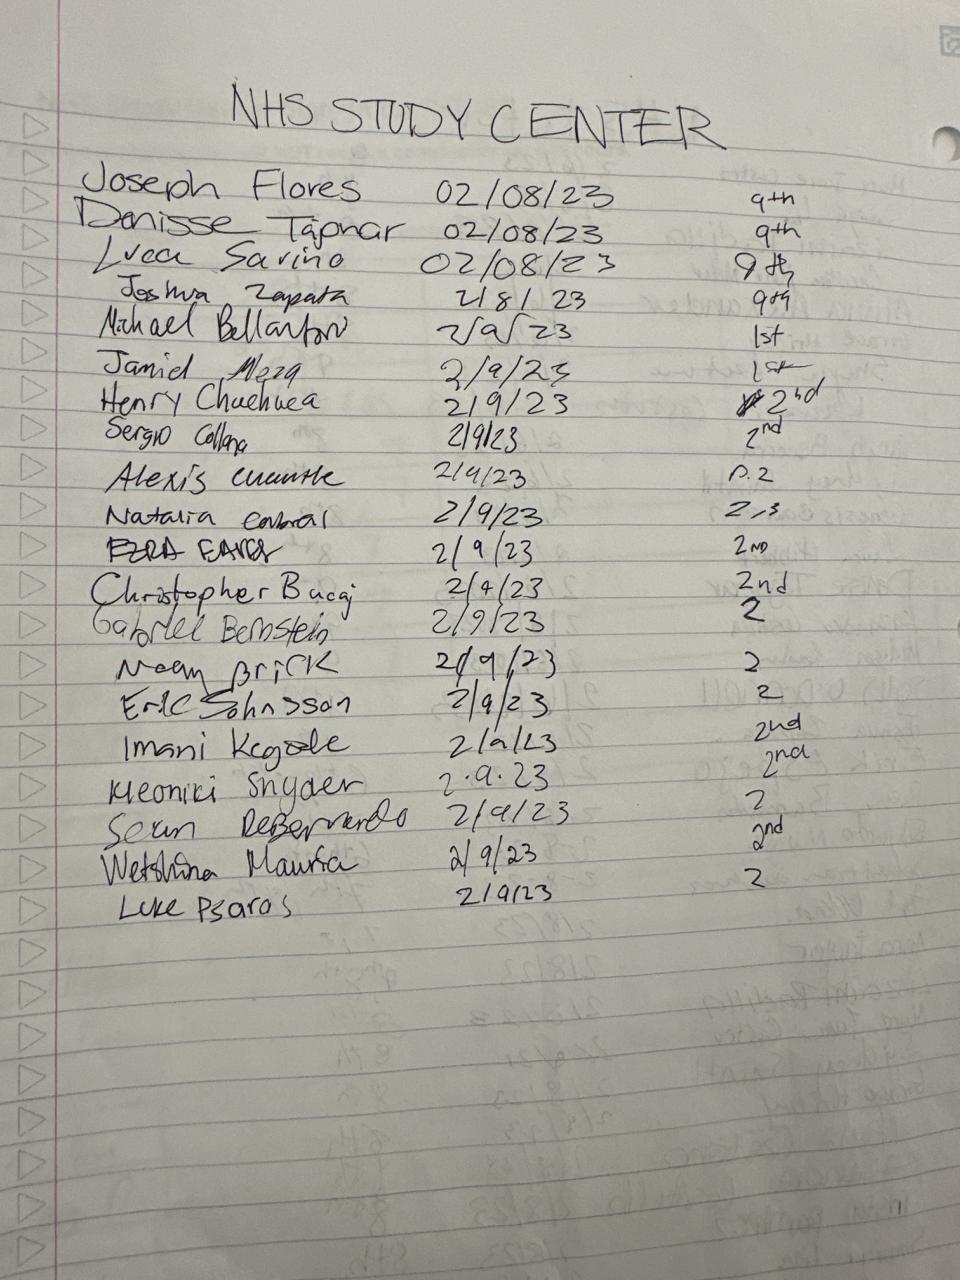 NHS STUDY CENTER
Joseph Flores 02/08/23 9th
Denisse Tapnar 02/08/23 9th
Luca Savino 02/08/23 9th
Joshua Zapata 2/8/23 9th
Michael 2/9/23 1st
Meza 2/9/23 1st
Henry 2/9/23 2nd
Sergio 2/9/23 2nd
Alexis 2/9/23 p.2
Natalia 2/9/23 2,3
EZRA 2/9/23 2ND
Christopher 2/9/23 2nd
Gabriel Bernstein 2/9/23 2
Brick 2/9/23 2
Eric Johnsson 2/9/23 2
Imani 2/9/23 2nd
Kleoniki Snyder 2.9.23 2nd
Sean DeBernardo 2/9/23 2
2/9/23 2nd
Luke Psaros 2/9/23 2